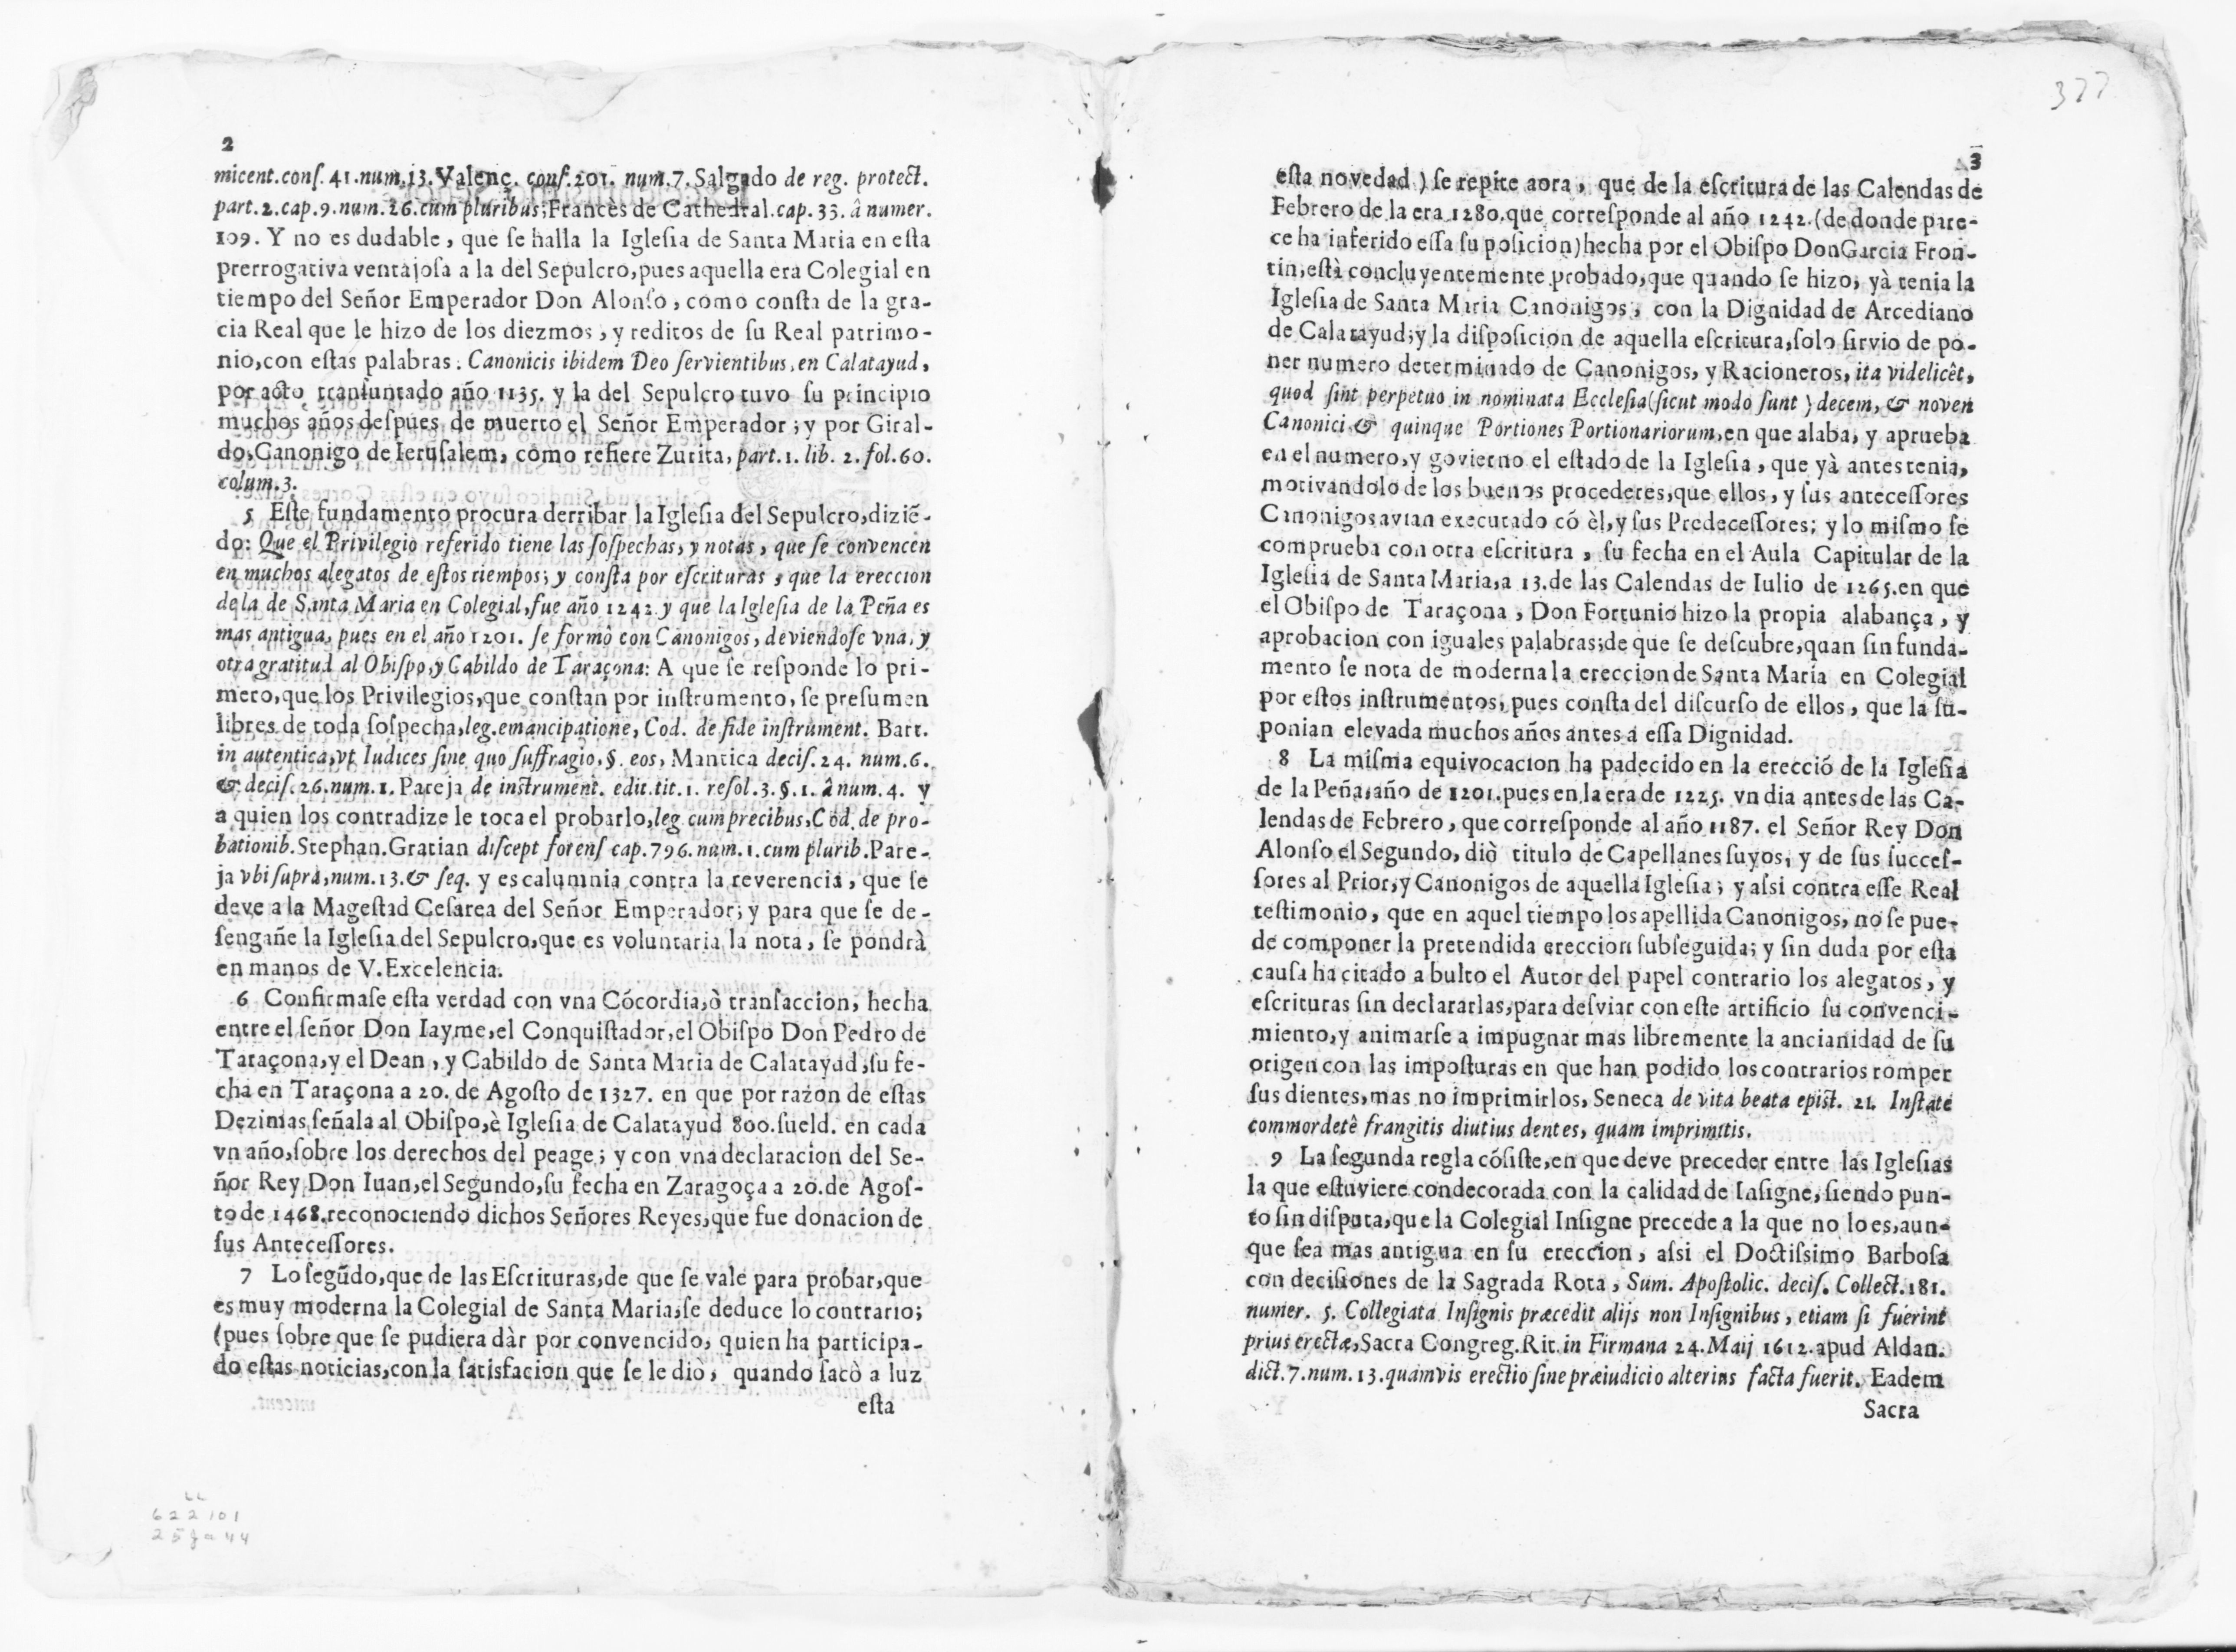 2
micent.conſ. 41.num.13.Valenç. conſ.201. num.7.Salgado de reg. protect.
part.2.cap.9.num.26.cum pluribus;Frances de Cathedral.cap. 33. â numer.
109. Y no es dudable, que ſe halla la Igleſia de Santa Maria en eſta
prerrogativa ventajoſa a la del Sepulcro,pues aquella era Colegial en
tiempo del Señor Emperador Don Alonſo, como conſta de la gra-
cia Real que le hizo de los diezmos, y reditos de ſu Real patrimo-
nio,con eſtas palabras: Canonicis ibidem Deo ſervientibus,en Calatayud,
por acto tranſuntado año 1135. y la del Sepulcro tuvo ſu principio
muchos años deſpues de muerto el Señor Emperador; y por Giral-
do,Canonigo de Ieruſalem, como refiere Zurita, part. 1. lib. 2. fol.60.
colum.3.
5 Eſte fundamento procura derribar la Igleſia del Sepulcro,diziẽ-
do: Que el Privilegio referido tiene las ſoſpechas, y notas, que ſe convencen
en muchos alegatos de eſtos tiempos; y conſta por eſcrituras, que la ereccion
de la de Santa Maria en Colegial,fue año 1242 y que la Igleſia de la Peña es
mas antigua, pues en el año 1201. ſe formò con Canonigos, deviendoſe vna, y
otra gratitud al Obiſpo,y Cabildo de Taraçona: A que ſe reſponde lo pri-
mero,que los Privilegios,que conſtan por inſtrumento, ſe preſumen
libres de toda ſoſpecha,leg.emancipatione, Cod. de fide inſtrument. Bart.
in autentica,vt Iudices ſine quo ſuffragio,§. eos, Mantica deciſ.24. num.6.
& deciſ.26.num.1. Pareja de inſtrument. edit.tit.1. reſol.3.§.1. ânum.4. y
a quien los contradize le toca el probarlo,leg.cum precibus,Cod.de pro-
bationib.Stephan.Gratian diſcept forenſ cap.796.num.1.cum plurib.Pare-
ja vbi ſuprà,num.13.& ſeq. y es calumnia contra la reverencia, que ſe
deve a la Mageſtad Ceſarea del Señor Emperador; y para que ſe de-
ſengañe la Igleſia del Sepulcro,que es voluntaria la nota, ſe pondrà
en manos de V.Excelencia.
6 Confirmaſe eſta verdad con vna Cócordia,ò tranſaccion, hecha
entre el ſeñor Don Iayme,el Conquiſtador,el Obiſpo Don Pedro de
Taraçona,y el Dean, y Cabildo de Santa Maria de Calatayud,ſu fe-
cha en Taraçona a 20. de Agoſto de 1327. en que por razon de eſtas
Dezimas ſeñala al Obiſpo,è Igleſia de Calatayud 800.ſueld. en cada
vn año,ſobre los derechos del peage; y con vna declaracion del Se-
ñor Rey Don Iuan,el Segundo,ſu fecha en Zaragoça a 20.de Agoſ-
to de 1468.reconociendo dichos Señores Reyes,que fue donacion de
ſus Anteceſſores.
7 Lo ſegũdo,que de las Eſcrituras,de que ſe vale para probar,que
es muy moderna la Colegial de Santa Maria,ſe deduce lo contrario;
(pues ſobre que ſe pudiera dàr por convencido, quien ha participa-
do eſtas noticias,con la ſatisfacion que ſe le diò, quando ſacò a luz
eſta
377
3
eſta novedad) ſe repite aora, que de la eſcritura de las Calendas de
Febrero de la era 1280.que correſponde al año 1242.(de donde pare-
ce ha inferido eſſa ſu poſicion)hecha por el Obiſpo Don Garcia Fron-
tin,eſtà concluyentemente probado,que quando ſe hizo, yà tenia la
Igleſia de Santa Maria Canonigos, con la Dignidad de Arcediano
de Calatayud;y la diſpoſicion de aquella eſcritura,ſolo ſirvio de po-
ner numero determinado de Canonigos, y Racioneros, ita videlicêt,
quod ſint perpetuo in nominata Eccleſia(ſicut modo ſunt) decem, & noven
Canonici & quinque Portiones Portionariorum,en que alaba, y aprueba
en el numero,y govierno el eſtado de la Igleſia, que yà antes tenia,
motivandolo de los buenos procederes,que ellos, y ſus anteceſſores
Canonigos avian executado có èl,y ſus Predeceſſores; y lo miſmo ſe
comprueba con otra eſcritura, ſu fecha en el Aula Capitular de la
Igleſia de Santa Maria,a 13.de las Calendas de Iulio de 1265.en que
el Obiſpo de Taraçona, Don Fortunio hizo la propia alabança, y
aprobacion con iguales palabras;de que ſe deſcubre,quan ſin funda-
mento ſe nota de moderna la ereccion de Santa Maria en Colegial
por eſtos inſtrumentos, pues conſta del diſcurſo de ellos, que la ſu-
ponian elevada muchos años antes a eſſa Dignidad.
8 La miſma equivocacion ha padecido en la erecció de la Igleſia
de la Peña,año de 1201.pues en la era de 1225. vn dia antes de las Ca-
lendas de Febrero, que correſponde al año 1187. el Señor Rey Don
Alonſo el Segundo, diò titulo de Capellanes ſuyos, y de ſus ſucceſ-
ſores al Prior,y Canonigos de aquella Igleſia; y aſsi contra eſſe Real
teſtimonio, que en aquel tiempo los apellida Canonigos, no ſe pue-
de componer la pretendida ereccion ſubſeguida; y ſin duda por eſta
cauſa ha citado a bulto el Autor del papel contrario los alegatos, y
eſcrituras ſin declararlas,para deſviar con eſte artificio ſu convenci-
miento,y animarſe a impugnar mas libremente la ancianidad de ſu
origen con las impoſturas en que han podido los contrarios romper
ſus dientes,mas no imprimirlos, Seneca de vita beata epiſt. 21. Inſtate
commordetê frangitis diutius dentes, quam imprimitis.
9 La ſegunda regla cóſiſte,en que deve preceder entre las Igleſias
la que eſtuviere condecorada con la calidad de Inſigne, ſiendo pun-
to ſin diſputa,que la Colegial Inſigne precede a la que no lo es,aun-
que ſea mas antigua en ſu ereccion, aſsi el Doctiſsimo Barboſa
con deciſiones de la Sagrada Rota, Sum. Apoſtolic. deciſ. Collect.181.
numer. 5. Collegiata Inſignis præcedit alijs non Inſignibus, etiam ſi fuerint
prius erectæ,Sacra Congreg.Rit.in Firmana 24.Maij 1612.apud Aldan.
dict.7.num.13.quamvis erectio ſine præiudicio alterius facta fuerit. Eadem
Sacra